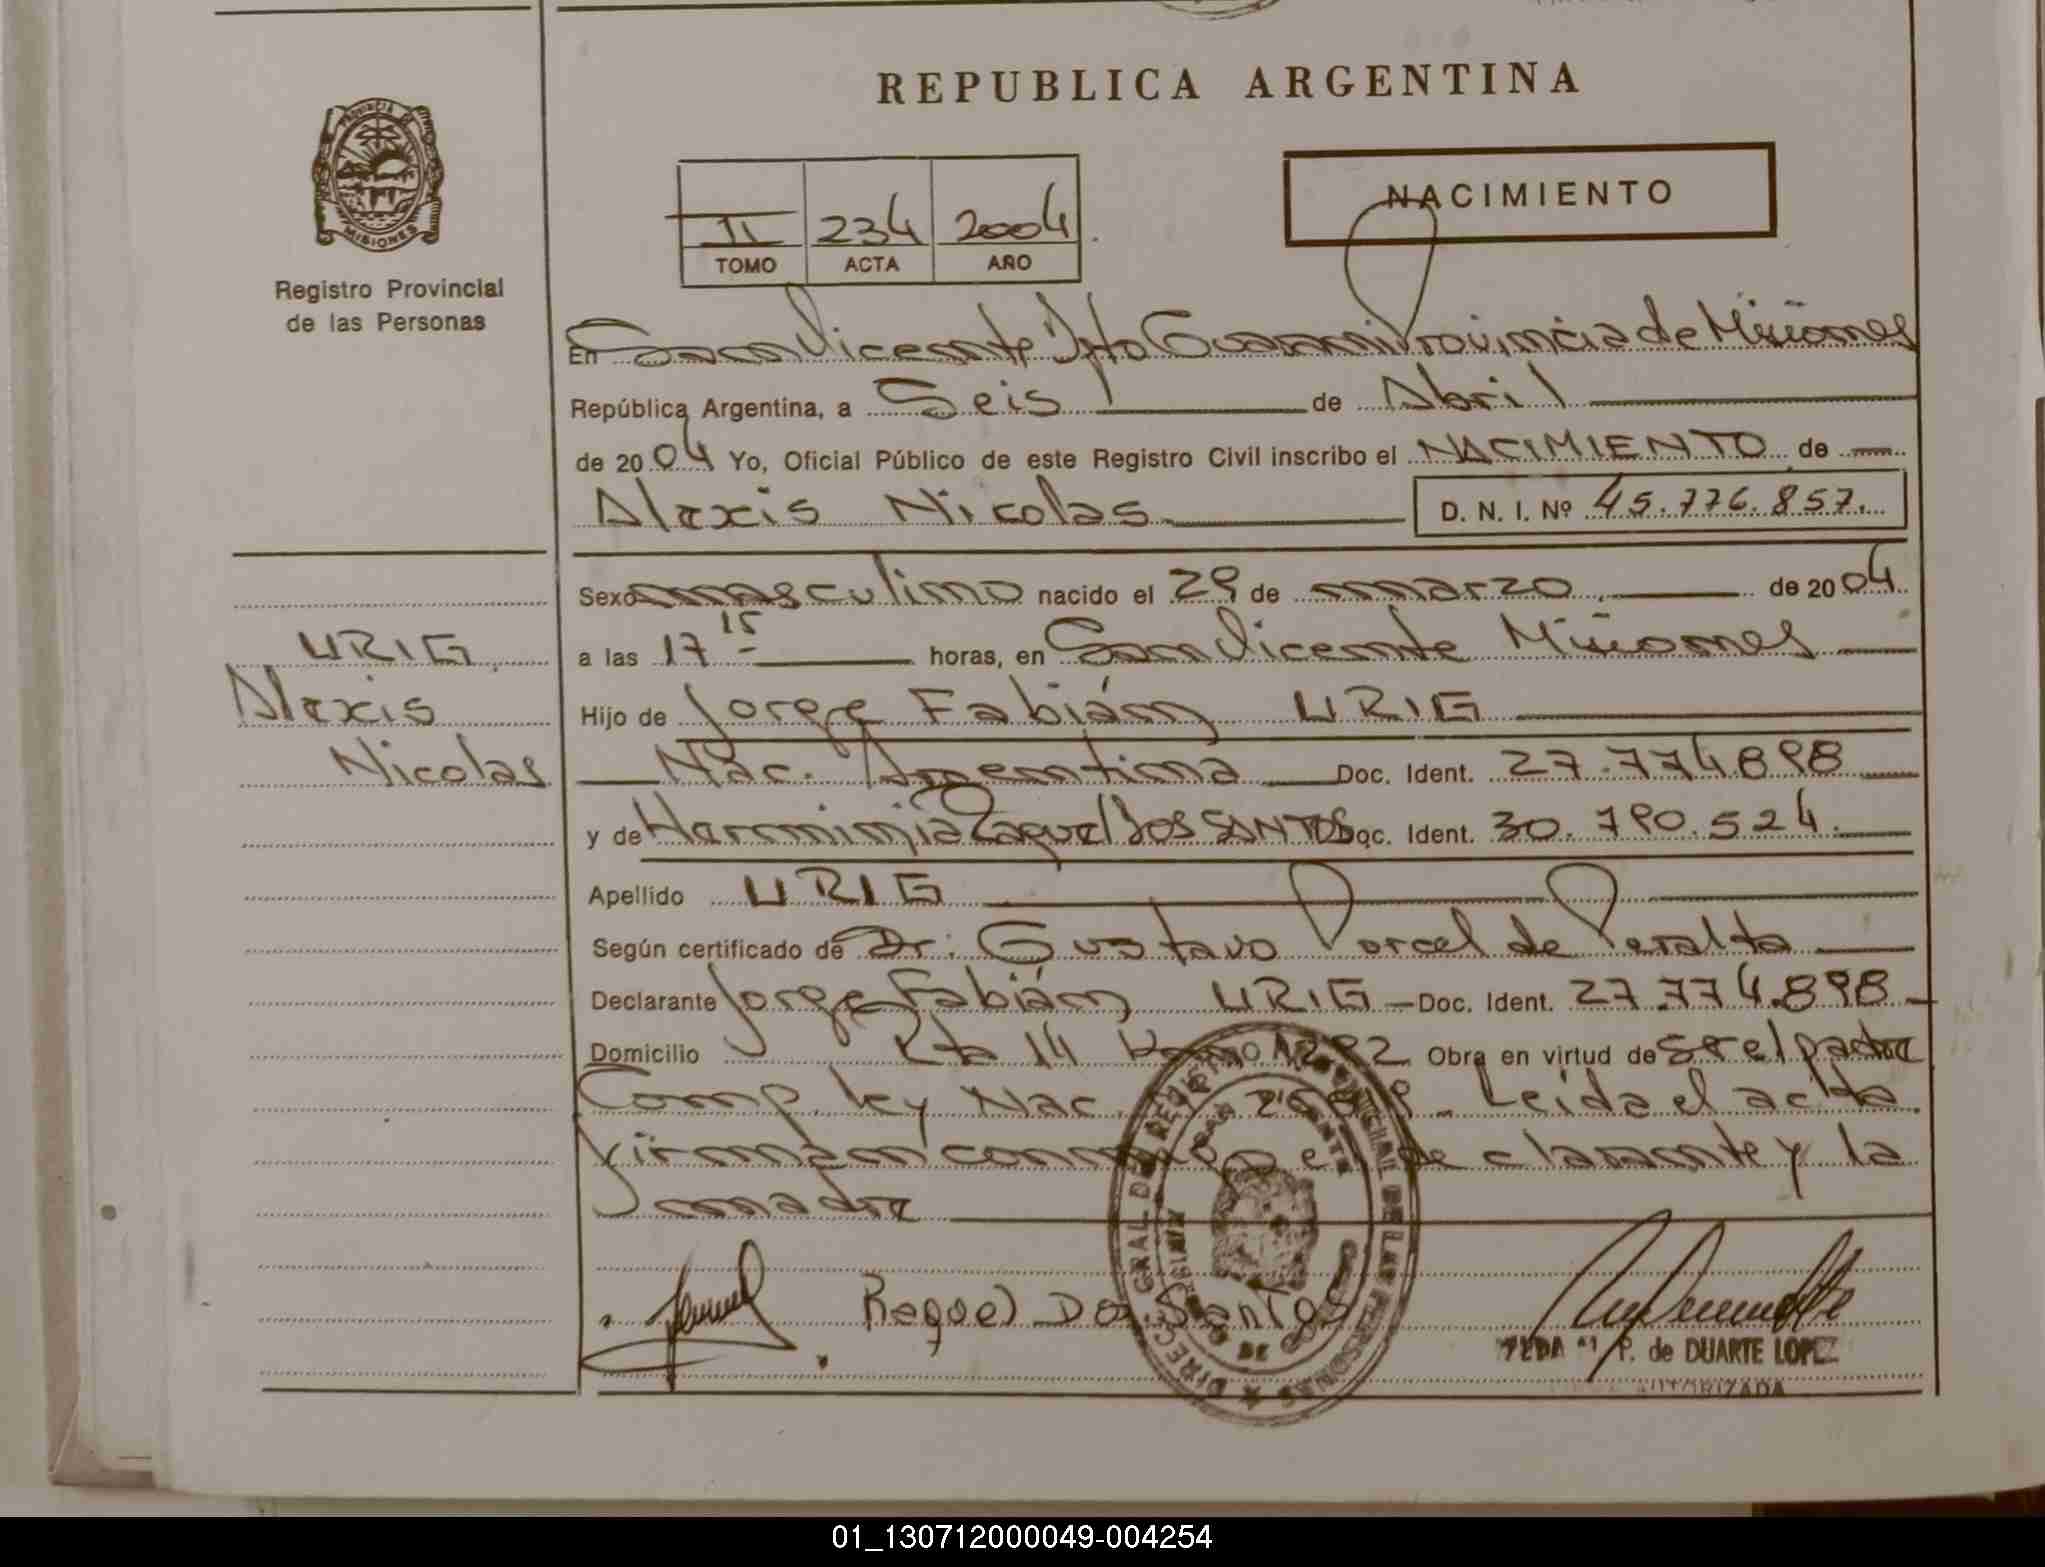 REPUBLICA ARGENTINA
PROVINCIA DE
MISIONES
Registro Provincial
de las Personas
II 234 2004
TOMO ACTA AÑO
NACIMIENTO
En San Vicente Dpto Guarani Provincia de Misiones
República Argentina, a Seis de Abril
de 2004 Yo, Oficial Público de este Registro Civil inscribo el NACIMIENTO de
Alexis Nicolas D. N. I. Nº 45.776.857.
Sexo masculino nacido el 29 de marzo de 2004
a las 17 15 horas, en San Vicente Misiones
Hijo de Jorge Fabián URIG
Nac. Argentina Doc. Ident. 27.774898
y de Herminia Raquel Dos SANTOS Doc. Ident. 30.790.524.
Apellido URIG
Según certificado de Dr. Gustavo Porcel de Peralta
Declarante Jorge Fabián URIG Doc. Ident. 27.774.898
Domicilio Rta 14 Obra en virtud de ser el padre
Comp. ley Nac. Leída el acta
firman conmigo el declarante y la
madre
URIG
Alexis
Nicolas
Raquel Dos Santos
P. de DUARTE LOPEZ
AUTORIZADA
01_130712000049-004254